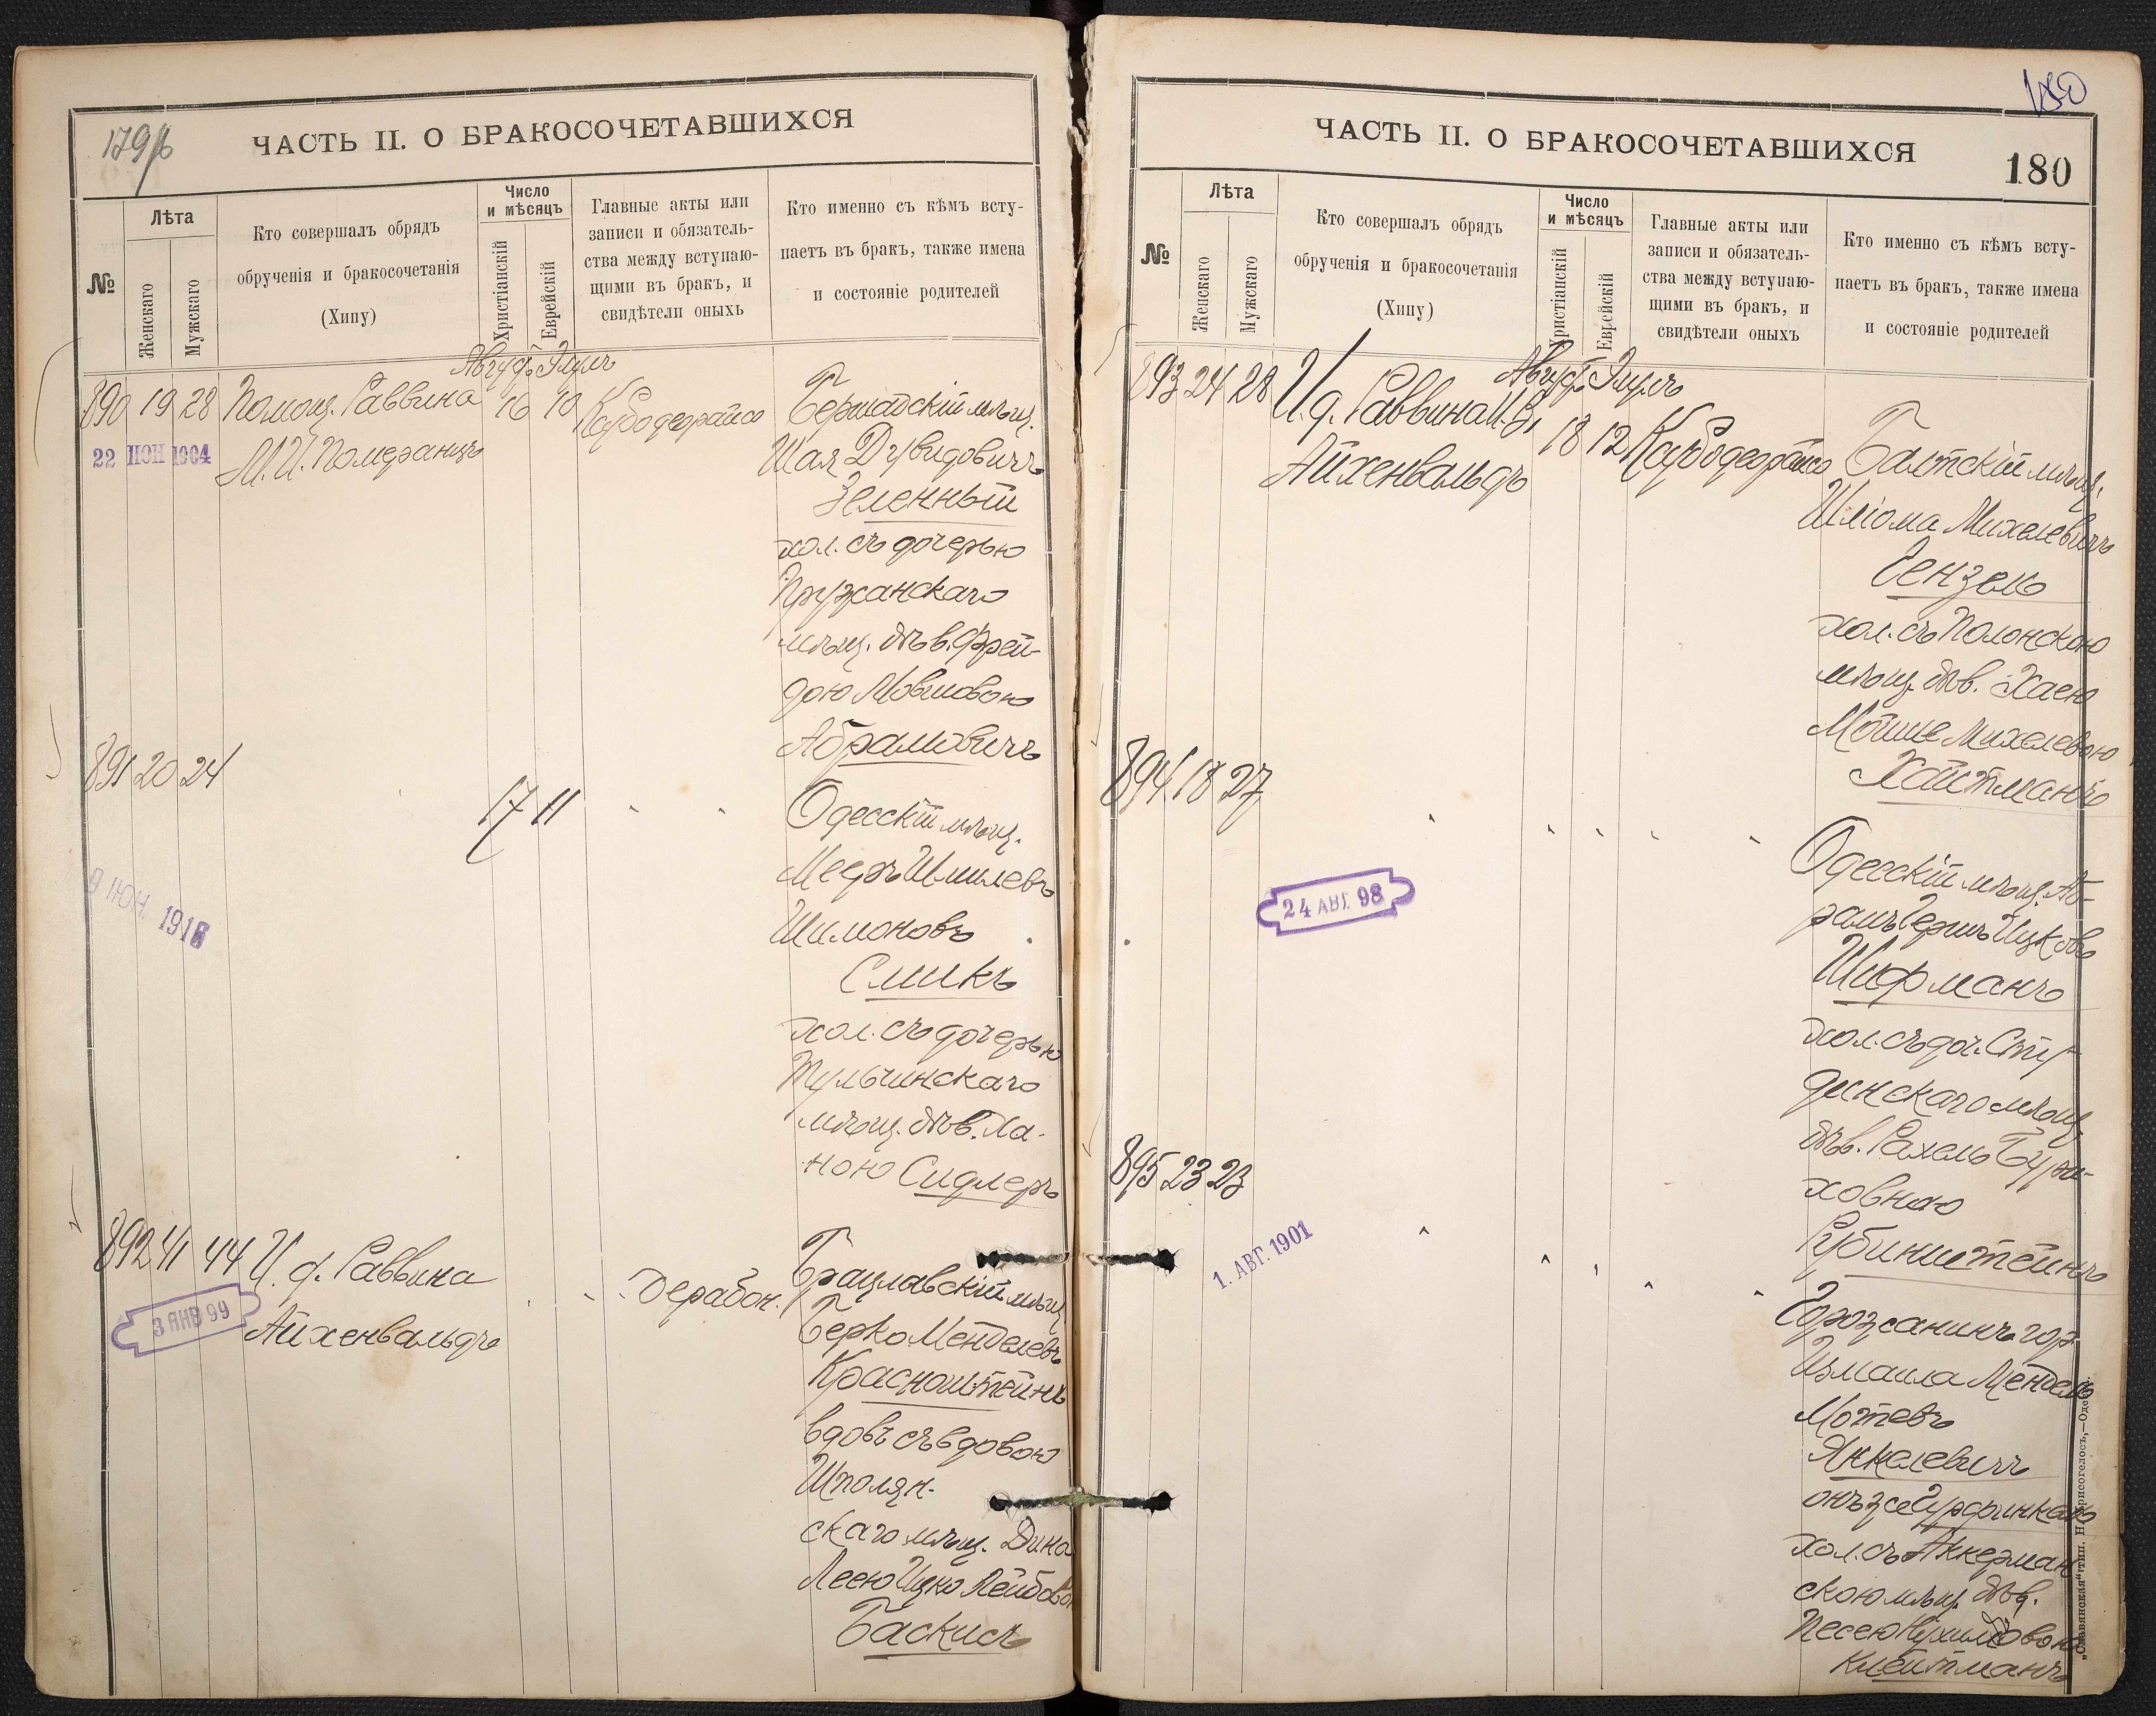 179 б
ЧАСТЬ II. О БРАКОСОЧЕТАВШИХСЯ
№
Лѣта
Женскаго
Мужскаго
Кто совершалъ обрядъ
обрученія и бракосочетанія
(Хипу)
Число
и мѣсяцъ
Христіанскій
Еврейскій
Главные акты или
записи и обязатель-
ства между вступаю-
щими въ бракъ, и
свидѣтели оныхъ
Кто именно съ кѣмъ всту-
паетъ въ бракъ, также имена
и состояніе родителей
Август. Элулъ
890 19 28 Помощ. Раввина 16 10
22 ИЮН 1904
М. И. Померанцъ
мѣщ.
Шая Дувидовичъ
Зеленный
хол. съ дочерью
Пружанскаго
мѣщ. дѣв. Фрей-
дою Мовшовою
Абрамовичъ
891 20 24
17 11
Одесскій мѣщ.
Мееръ Шмилевъ
Шимоновъ
Сликъ
хол. съ дочерью
Тульчинскаго
мѣщ. дѣв. Ха-
ною Сидлеръ
9 ИЮН. 1916
892 41 44 И. д. Раввина
Айхенвальдъ
3 ЯНВ 99
Дерабон.
Брацлавскій мѣщ.
Берко Менделевъ
Красноштейнъ
вдовъ съ вдовою
Шполян-
скаго мѣщ. Дина
Леею Ицко Лейбовою
Баскисъ
180
ЧАСТЬ II. О БРАКОСОЧЕТАВШИХСЯ
180
№
Лѣта
Женскаго
Мужскаго
Кто совершалъ обрядъ
обрученія и бракосочетанія
(Хипу)
Число
и мѣсяцъ
Христіанскій
Еврейскій
Главные акты или
записи и обязатель-
ства между вступаю-
щими въ бракъ, и
свидѣтели оныхъ
Кто именно съ кѣмъ всту-
паетъ въ бракъ, также имена
и состояніе родителей
Август. Элулъ
893 24 28 И. д. Раввина
Айхенвальдъ
18 12
Балтскій мѣщ.
Шліома Михелевичъ
Гензель
хол. съ Полонскою
мѣщ. дѣв. Хаею
Мойше Михелевою
Хайтманъ
894 18 27
24 АВГ. 98
Одесскій мѣщ. Аб-
рамъ Гершъ Ицковъ
Шифманъ
хол. съ доч. Сту-
денскаго мѣщ.
дѣв. Рахель
ховною
Рубинштейнъ
895 23 23
1. АВГ. 1901
Горожанинъ гор.
Измаила Мендель
Мотевъ
Янкелевичъ
онъ же Гурфинкель
хол. съ Аккерман
скою мѣщ. дѣв.
Песею
Клейтманъ
„Славянская“ тип. Н. Хрисогелосъ,—Одесса.